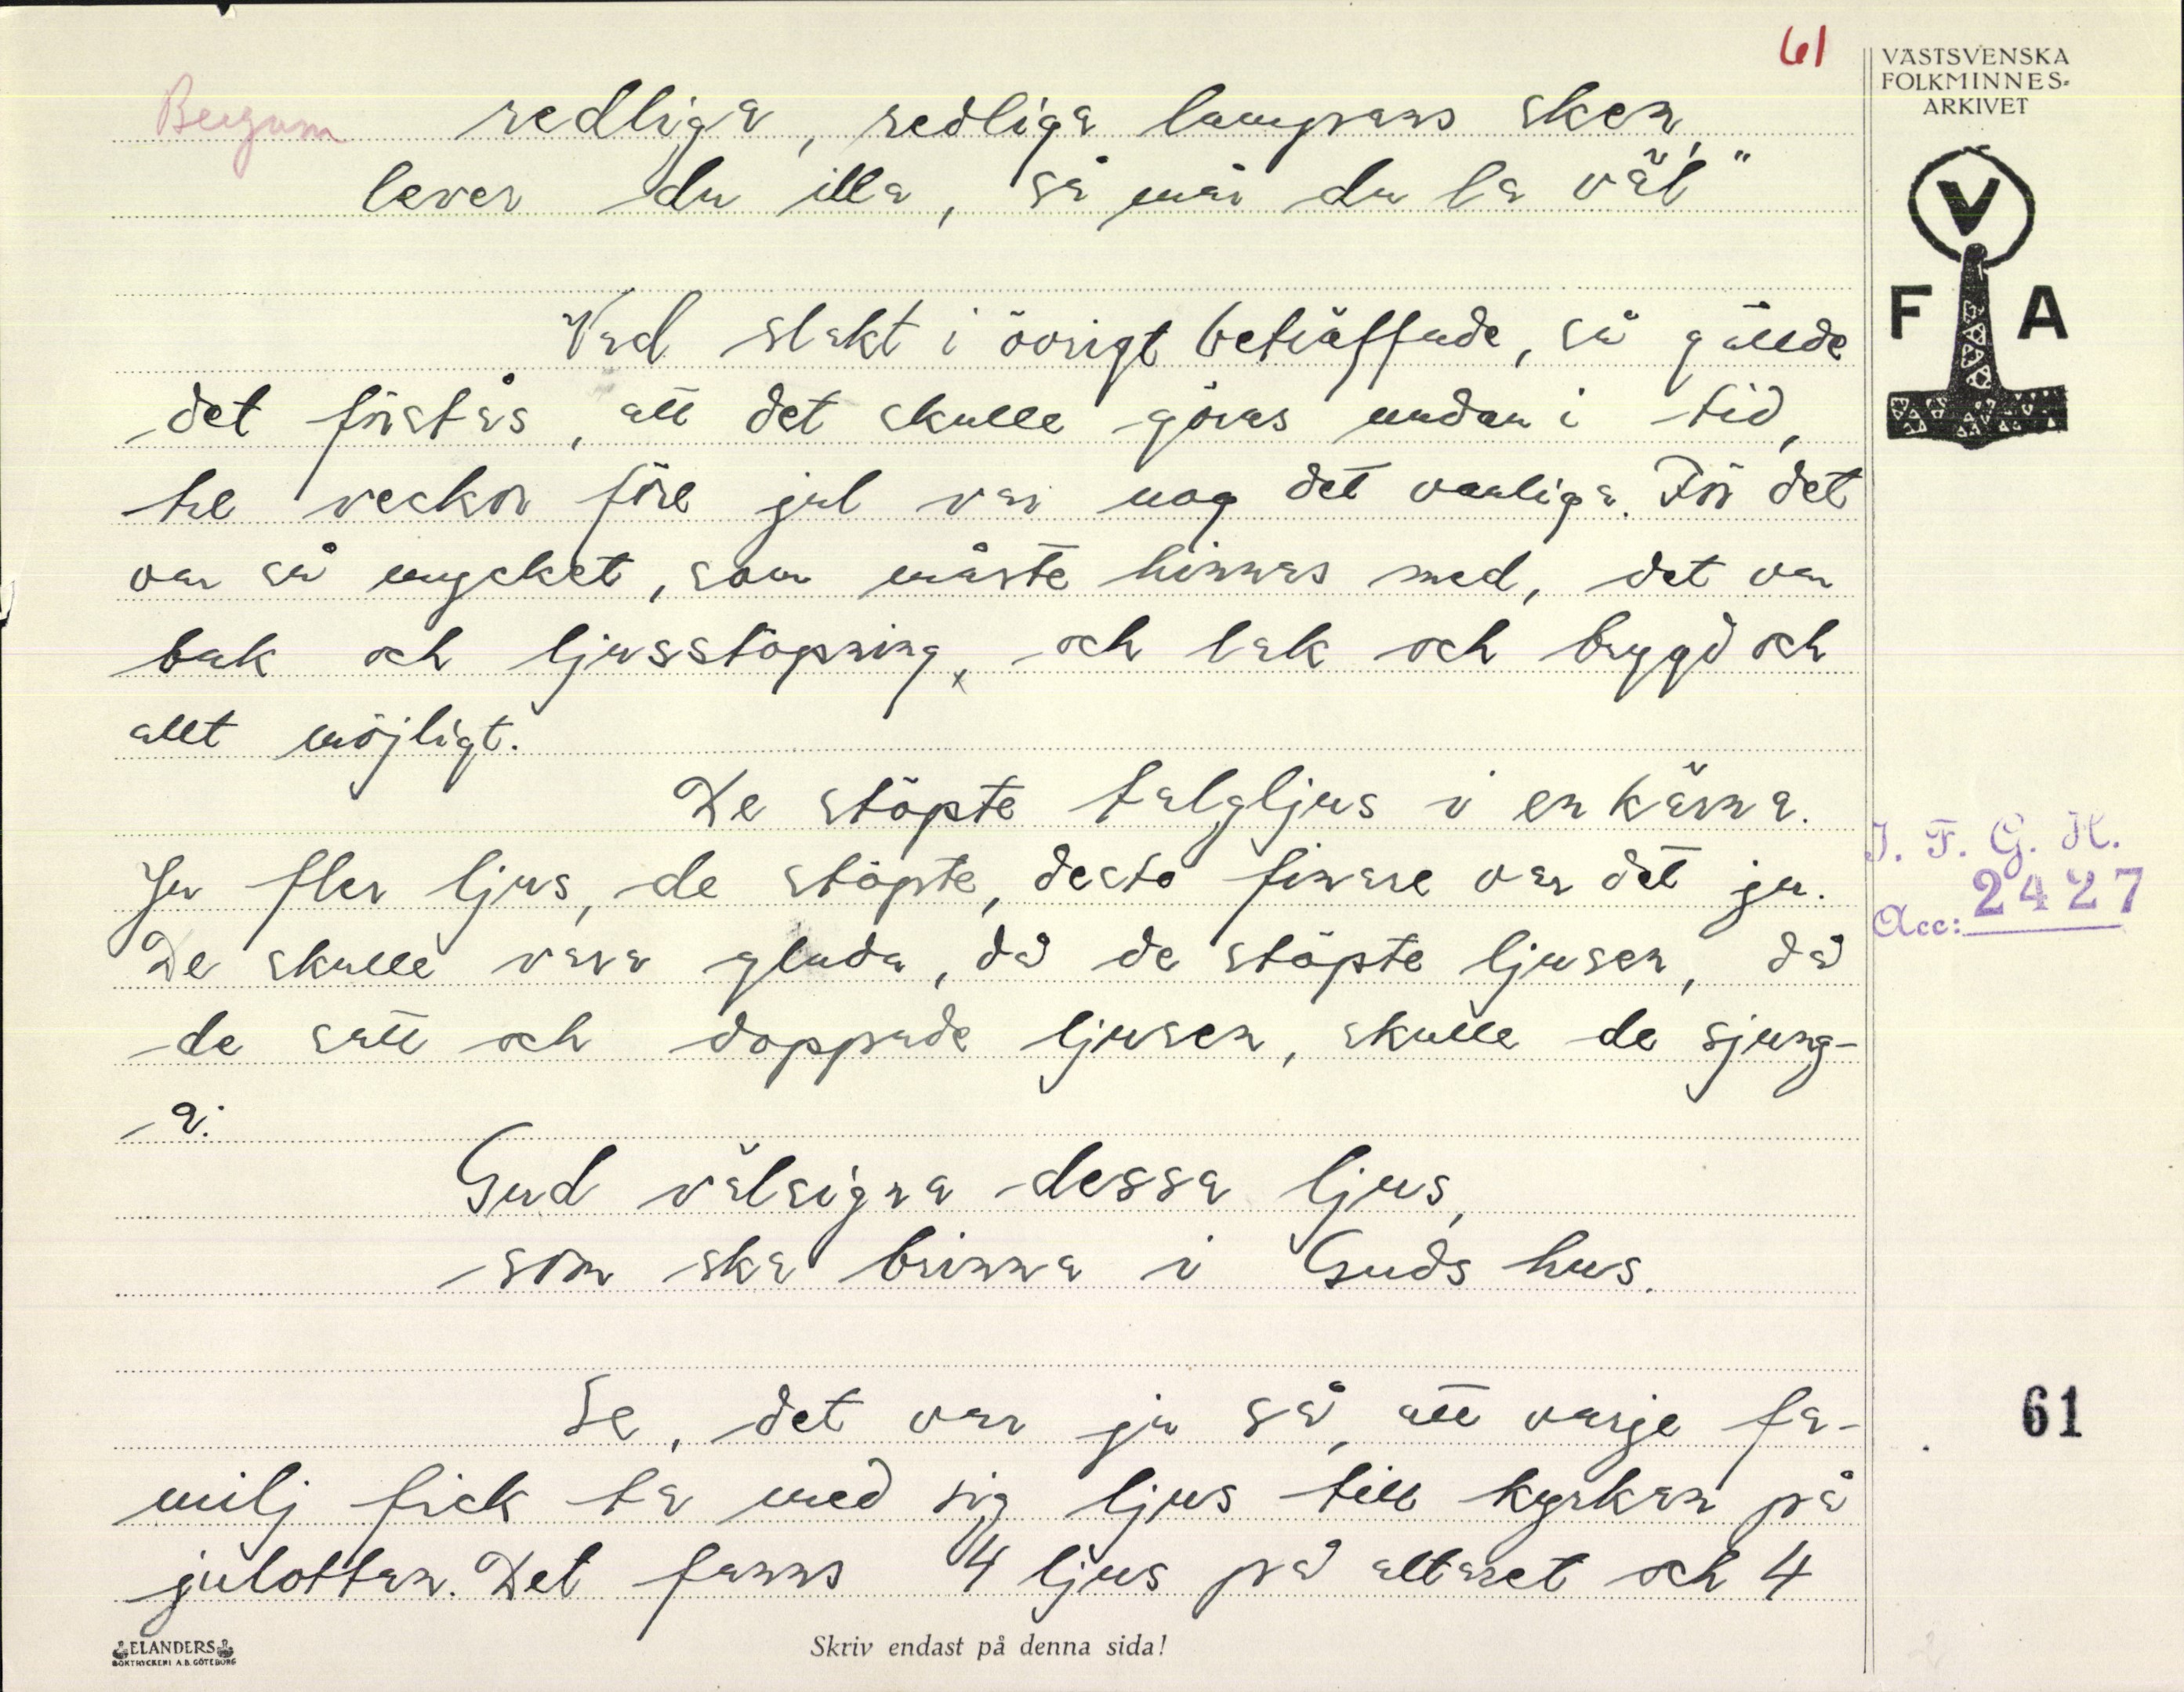 61
VÄSTSVENSKA
FOLKMINNES-
ARKIVET
V
F A
Bergum
redliga, redliga lampans sken,
lever du illa, så mår du la väl"
Vad slakt i övrigt beträffade, så gällde
det förstås, att det skulle göras undan i tid,
tre veckor före jul var nog det vanliga. För det
var så mycket, som måste hinnas med, det var
bak och ljusstöpning, och lak och brygd och
allt möjligt.
De stöpte talgljus i en kärna.
Ju fler ljus, de stöpte, desto finare var det ju.
De skulle vara glada, då de stöpte ljusen, då
de satt och doppade ljusen, skulle de sjung-
a:
Gud välsigna dessa ljus,
som ska brinna i Guds hus.
Se, det var ju så, att varje fa-
milj fick ta med sig ljus till kyrkan på
julottan. Det fanns 4 ljus på altaret och 4
I. F. G. H.
Acc: 2427
61
ELANDERS
BOKTRYCKERI A.B. GÖTEBORG
Skriv endast på denna sida!